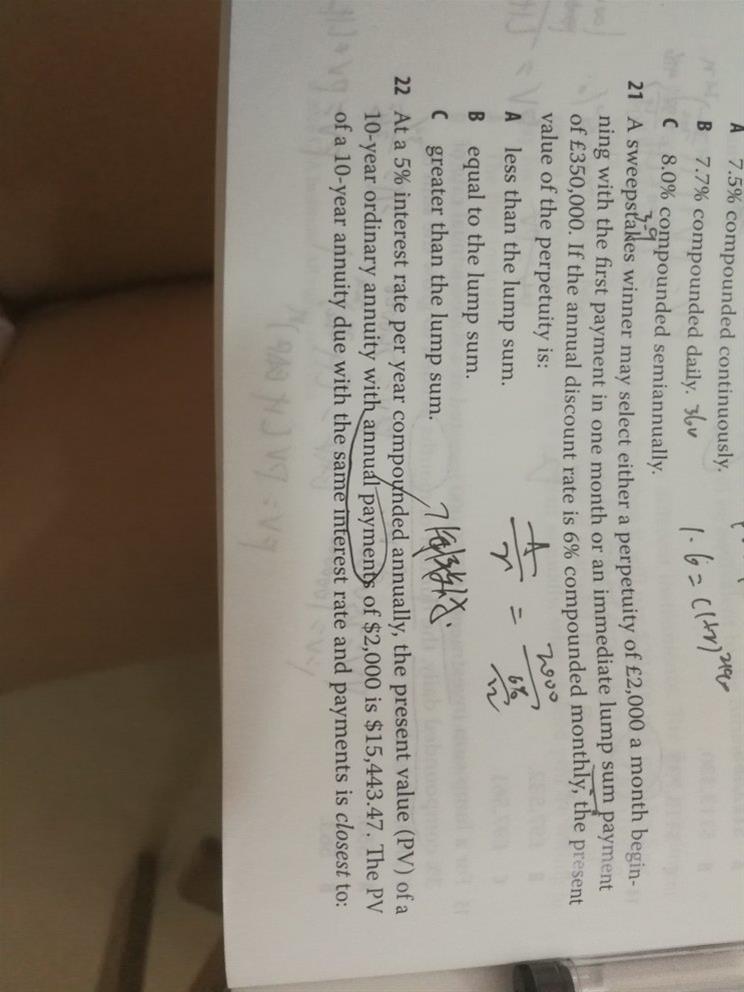 A 7.5% compounded continuously.
B 7.7% compounded daily. 360
C 8.0% compounded semiannually.
21 A sweepstakes winner may select either a perpetuity of £2,000 a month begin-
ning with the first payment in one month or an immediate lump sum payment
of £350,000. If the annual discount rate is 6% compounded monthly, the present
value of the perpetuity is:
A less than the lump sum.
B equal to the lump sum.
C greater than the lump sum.
A/r = 2000 / 6%/12
22 At a 5% interest rate per year compounded annually, the present value (PV) of a
10-year ordinary annuity with annual payments of $2,000 is $15,443.47. The PV
of a 10-year annuity due with the same interest rate and payments is closest to: